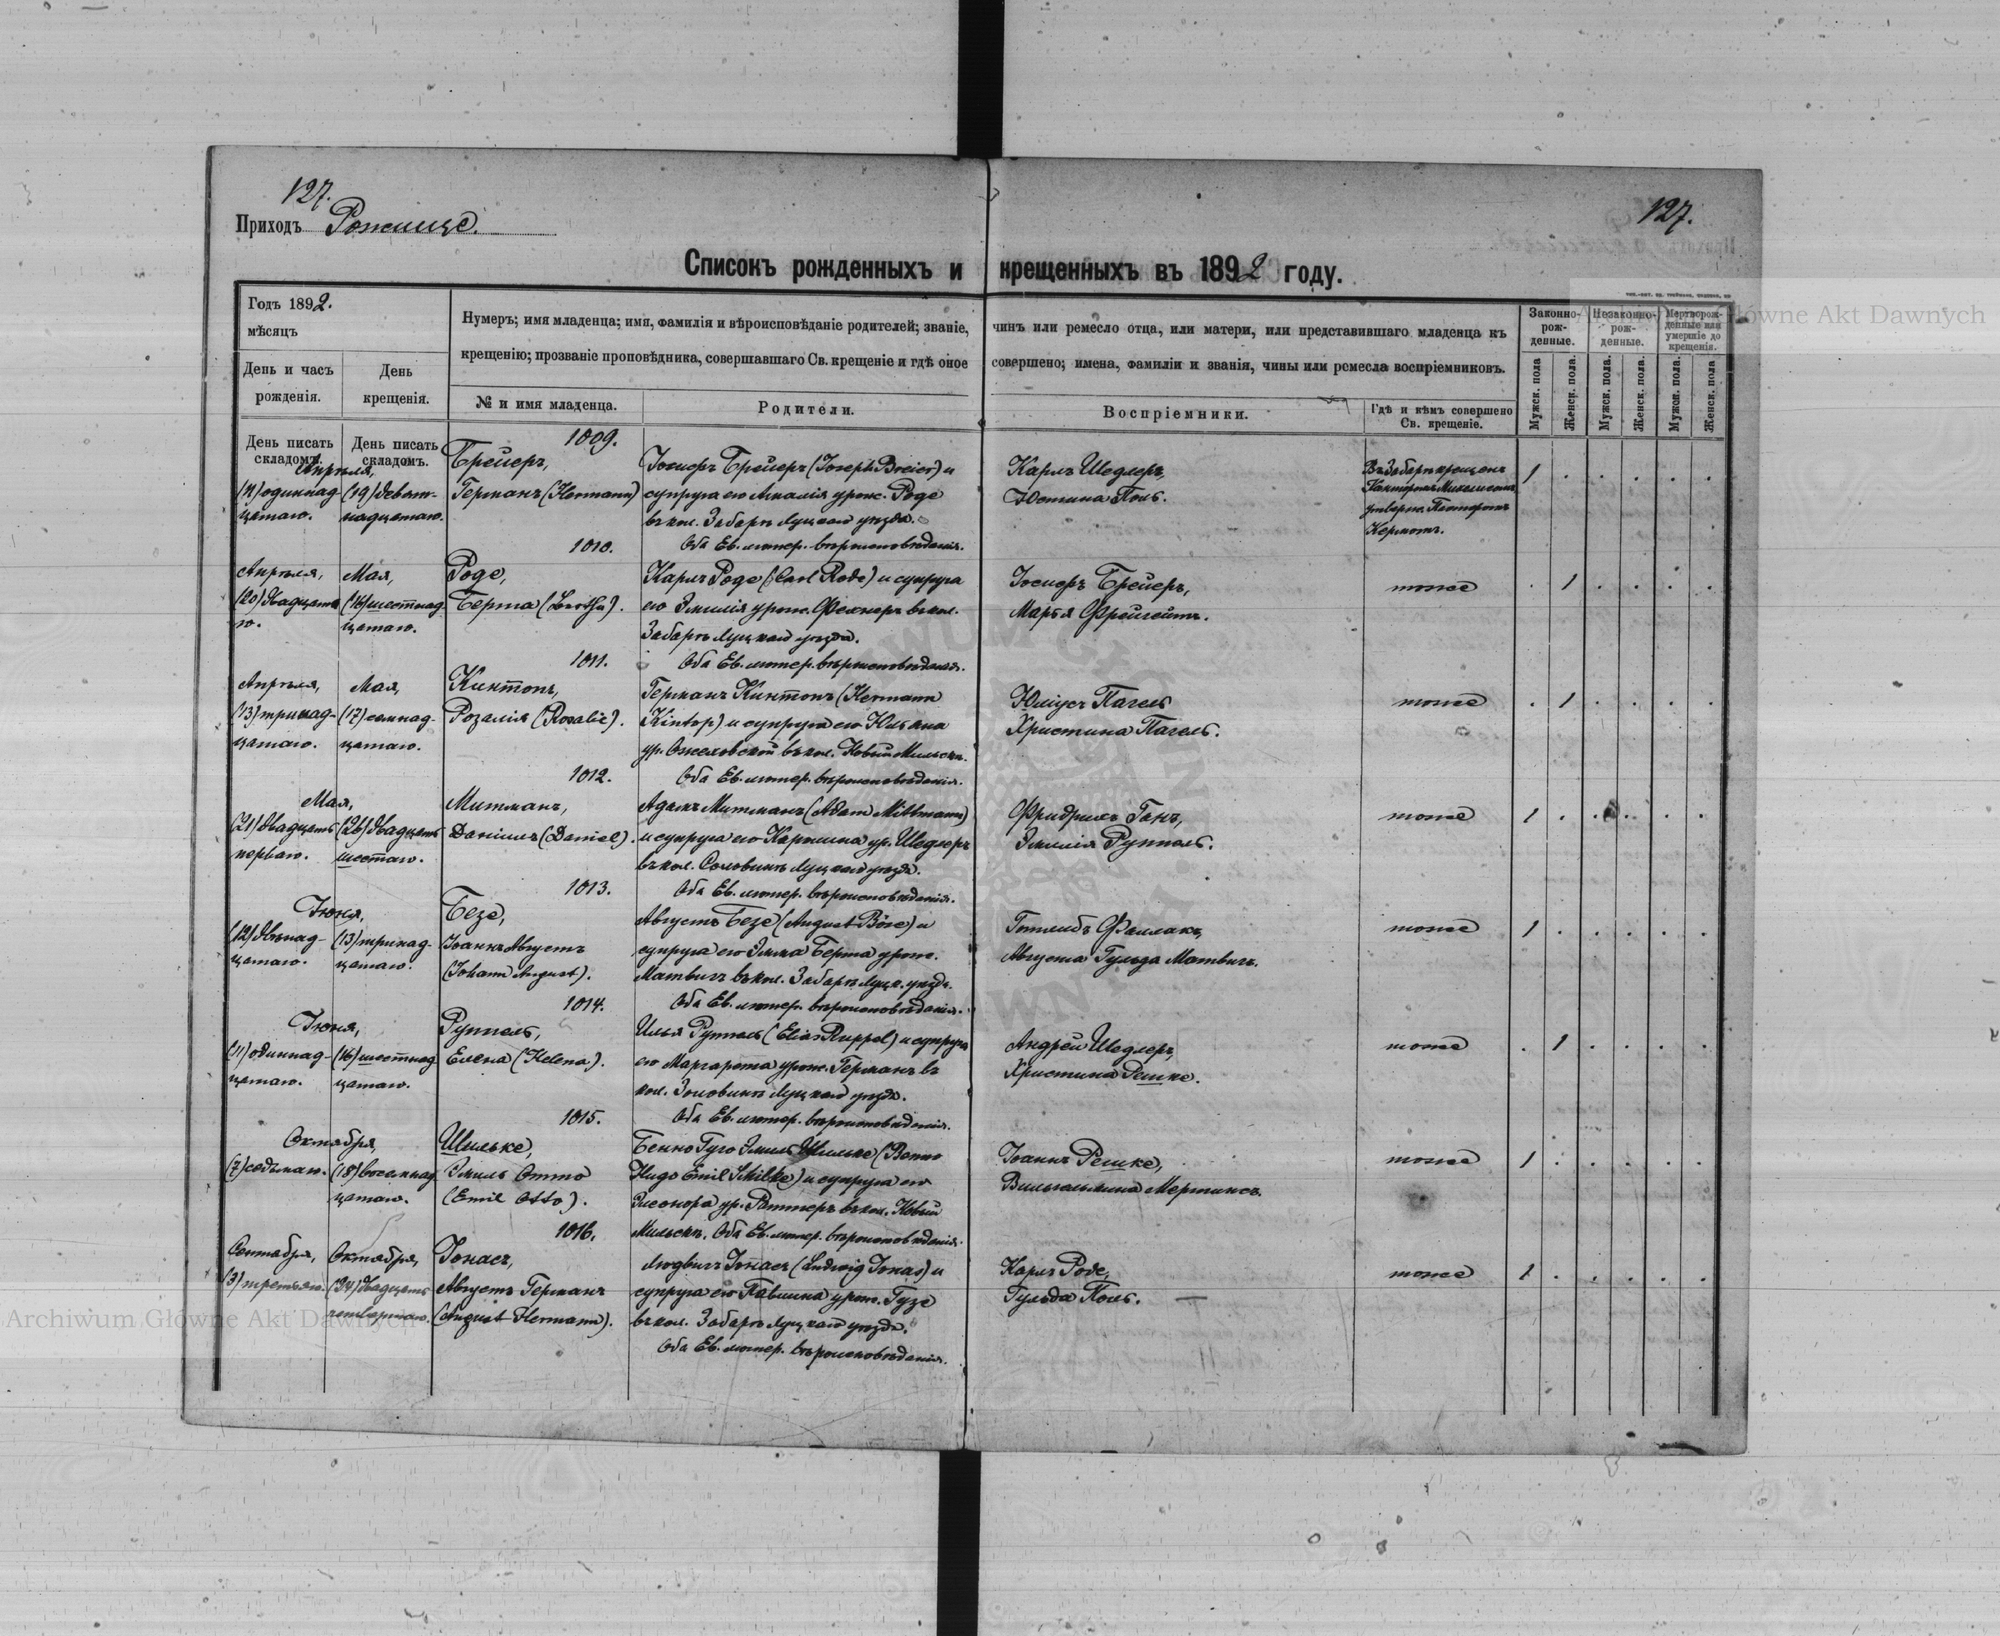 127.
Приходъ Рожище.
127.
Списокъ рожденныхъ и крещенныхъ въ 1892 году.
Годъ 1892.
мѣсяцъ
День и часъ рожденія.
День крещенія.
Нумеръ; имя младенца; имя, фамилія и вѣроисповѣданіе родителей; званіе, чинъ или ремесло отца, или матери, или представившаго младенца къ
крещенію; прозваніе проповѣдника, совершавшаго Св. крещеніе и гдѣ оное совершено; имена, фамиліи и званія, чины или ремесла воспріемниковъ.
№ и имя младенца.
Родители.
Воспріемники.
Гдѣ и кѣмъ совершено
Св. крещеніе.
Законно-
рож-
денные.
Незаконно-
рож-
денные.
Мертворож-
денные или
умершіе до
крещенія.
Мужск. пола
Женск. пола.
Мужск. пола.
Женск. пола.
Мужск. пола.
Женск. пола.
День писать
складомъ.
День писать
складомъ.
1009.
Апрѣля,
(11) одиннад-
цатаго.
(19) девят-
надцатаго.
Брейеръ,
Германъ (Hermann)
Іосифъ Брейеръ (Joseph Breier) и
супруга его Амалія урож. Роде
въ кол. Забара Луцкаго уѣзда.
Оба Ев. лютер. вѣроисповѣданія.
Карлъ Шедлеръ,
Юстина Поль.
1
1010.
Апрѣля,
(20) двадцата-
го.
Мая,
(16) шестнад-
цатаго.
Роде,
Берта (Bertha).
Карлъ Роде (Carl Rode) и супруга
его Эмилія урож. Фехнеръ въ кол.
Забара Луцкаго уѣзда.
Оба Ев. лютер. вѣроисповѣданія.
Іосифъ Брейеръ,
тоже
1
1011.
Апрѣля,
(13) тринад-
цатаго.
Мая,
(17) семнад-
цатаго.
Кинтопъ,
Розалія (Rosalie).
Германъ Кинтопъ (Hermann
Kintop) и супруга его Юліана
въ кол. Новый Мильскъ.
Оба Ев. лютер. вѣроисповѣданія.
Юліусъ Пагель
Христина Пагель.
тоже
1
1012.
Мая,
(21) двадцать
перваго.
(26) двадцать
шестаго.
Митманъ,
Даніилъ (Daniel).
Адамъ Митманъ (Adam Mittmann)
и супруга его Каролина ур. Шедлеръ
въ кол. Луцкаго уѣзда.
Оба Ев. лютер. вѣроисповѣданія.
Фридрихъ Ганъ,
Эмилія Руппель.
тоже
1
1013.
Іюня,
(12) двѣнад-
цатаго.
(13) тринад-
цатаго.
Безе,
Іоаннъ Августъ
(Johann August).
Августъ Безе (August Böse) и
супруга его Эмма Берта урож.
Матвигъ въ кол. Забара Луцк. уѣзда.
Оба Ев. лютер. вѣроисповѣданія.
Готлибъ
Августа Гульда Матвигъ.
тоже
1
1014.
Іюня,
(11) одиннад-
цатаго.
(16) шестнад-
цатаго.
Руппель,
Елена (Helena).
Илья Руппель (Elias Ruppel) и супруга
его Маргарета урож. Германъ въ
кол. Луцкаго уѣзда.
Оба Ев. лютер. вѣроисповѣданія.
Андрей Шедлеръ,
Христина Решке.
тоже
1
1015.
Октября,
(7) седьмаго.
(18) восемнад-
цатаго.
Шильке,
Эмиль Отто
(Emil Otto).
Бенно Гуго Эмиль Шильке (Benno
Hugo Emil Schilke) и супруга его
Элеонора ур. Раттеръ въ кол. Новый
Мильскъ. Оба Ев. лютер. вѣроисповѣданія.
Іоаннъ Решке,
Вильгельмина Мертинсъ.
тоже
1
1016.
Сентября,
(3) третьяго.
Октября,
(24) двадцать
четвертаго.
Іонасъ,
Августъ Германъ
(August Hermann).
Людвигъ Іонасъ (Ludwig Jonas) и
супруга его Павлина урож. Гузе
въ кол. Забара Луцкаго уѣзда.
Оба Ев. лютер. вѣроисповѣданія.
Карлъ Роде,
Гульда Поль.
тоже
1
Archiwum Główne Akt Dawnych
Archiwum Główne Akt Dawnych